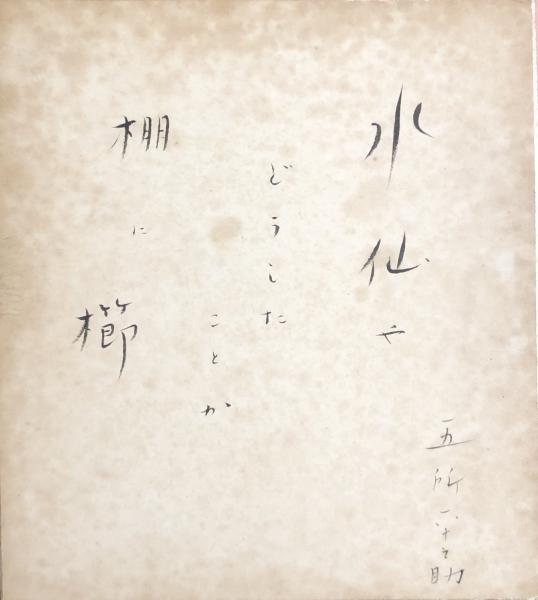 水仙や
どうした
ことか
棚に櫛
五所平之助